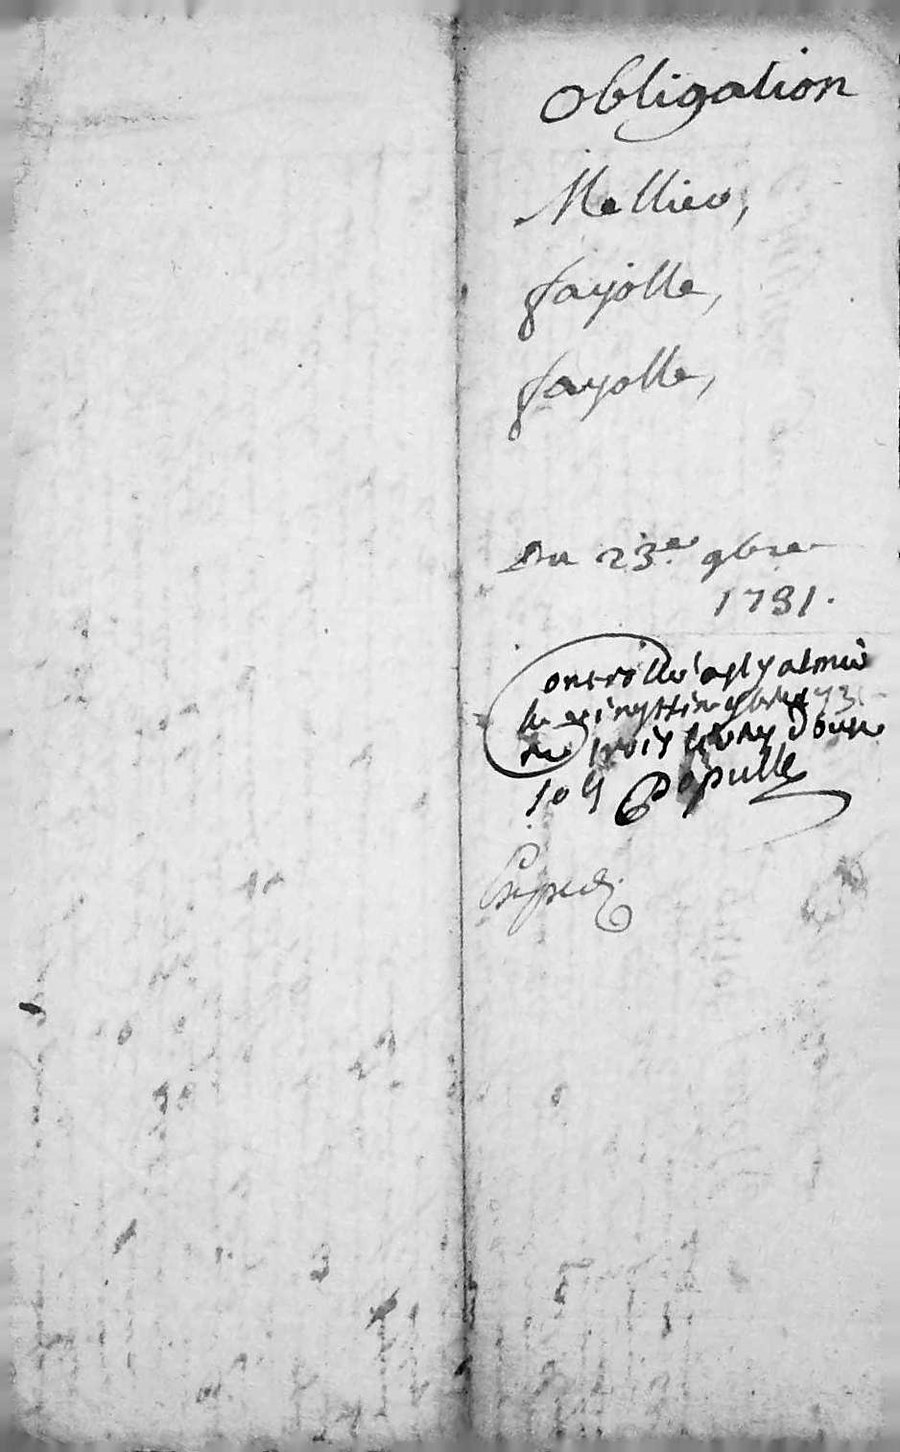 Obligation
Mellieu,
fayolle,
fayolle,
Du 23.e 9bre
1731.
Controllé a
le vingt 9bre 173
Re trois livres douze
sols Populle